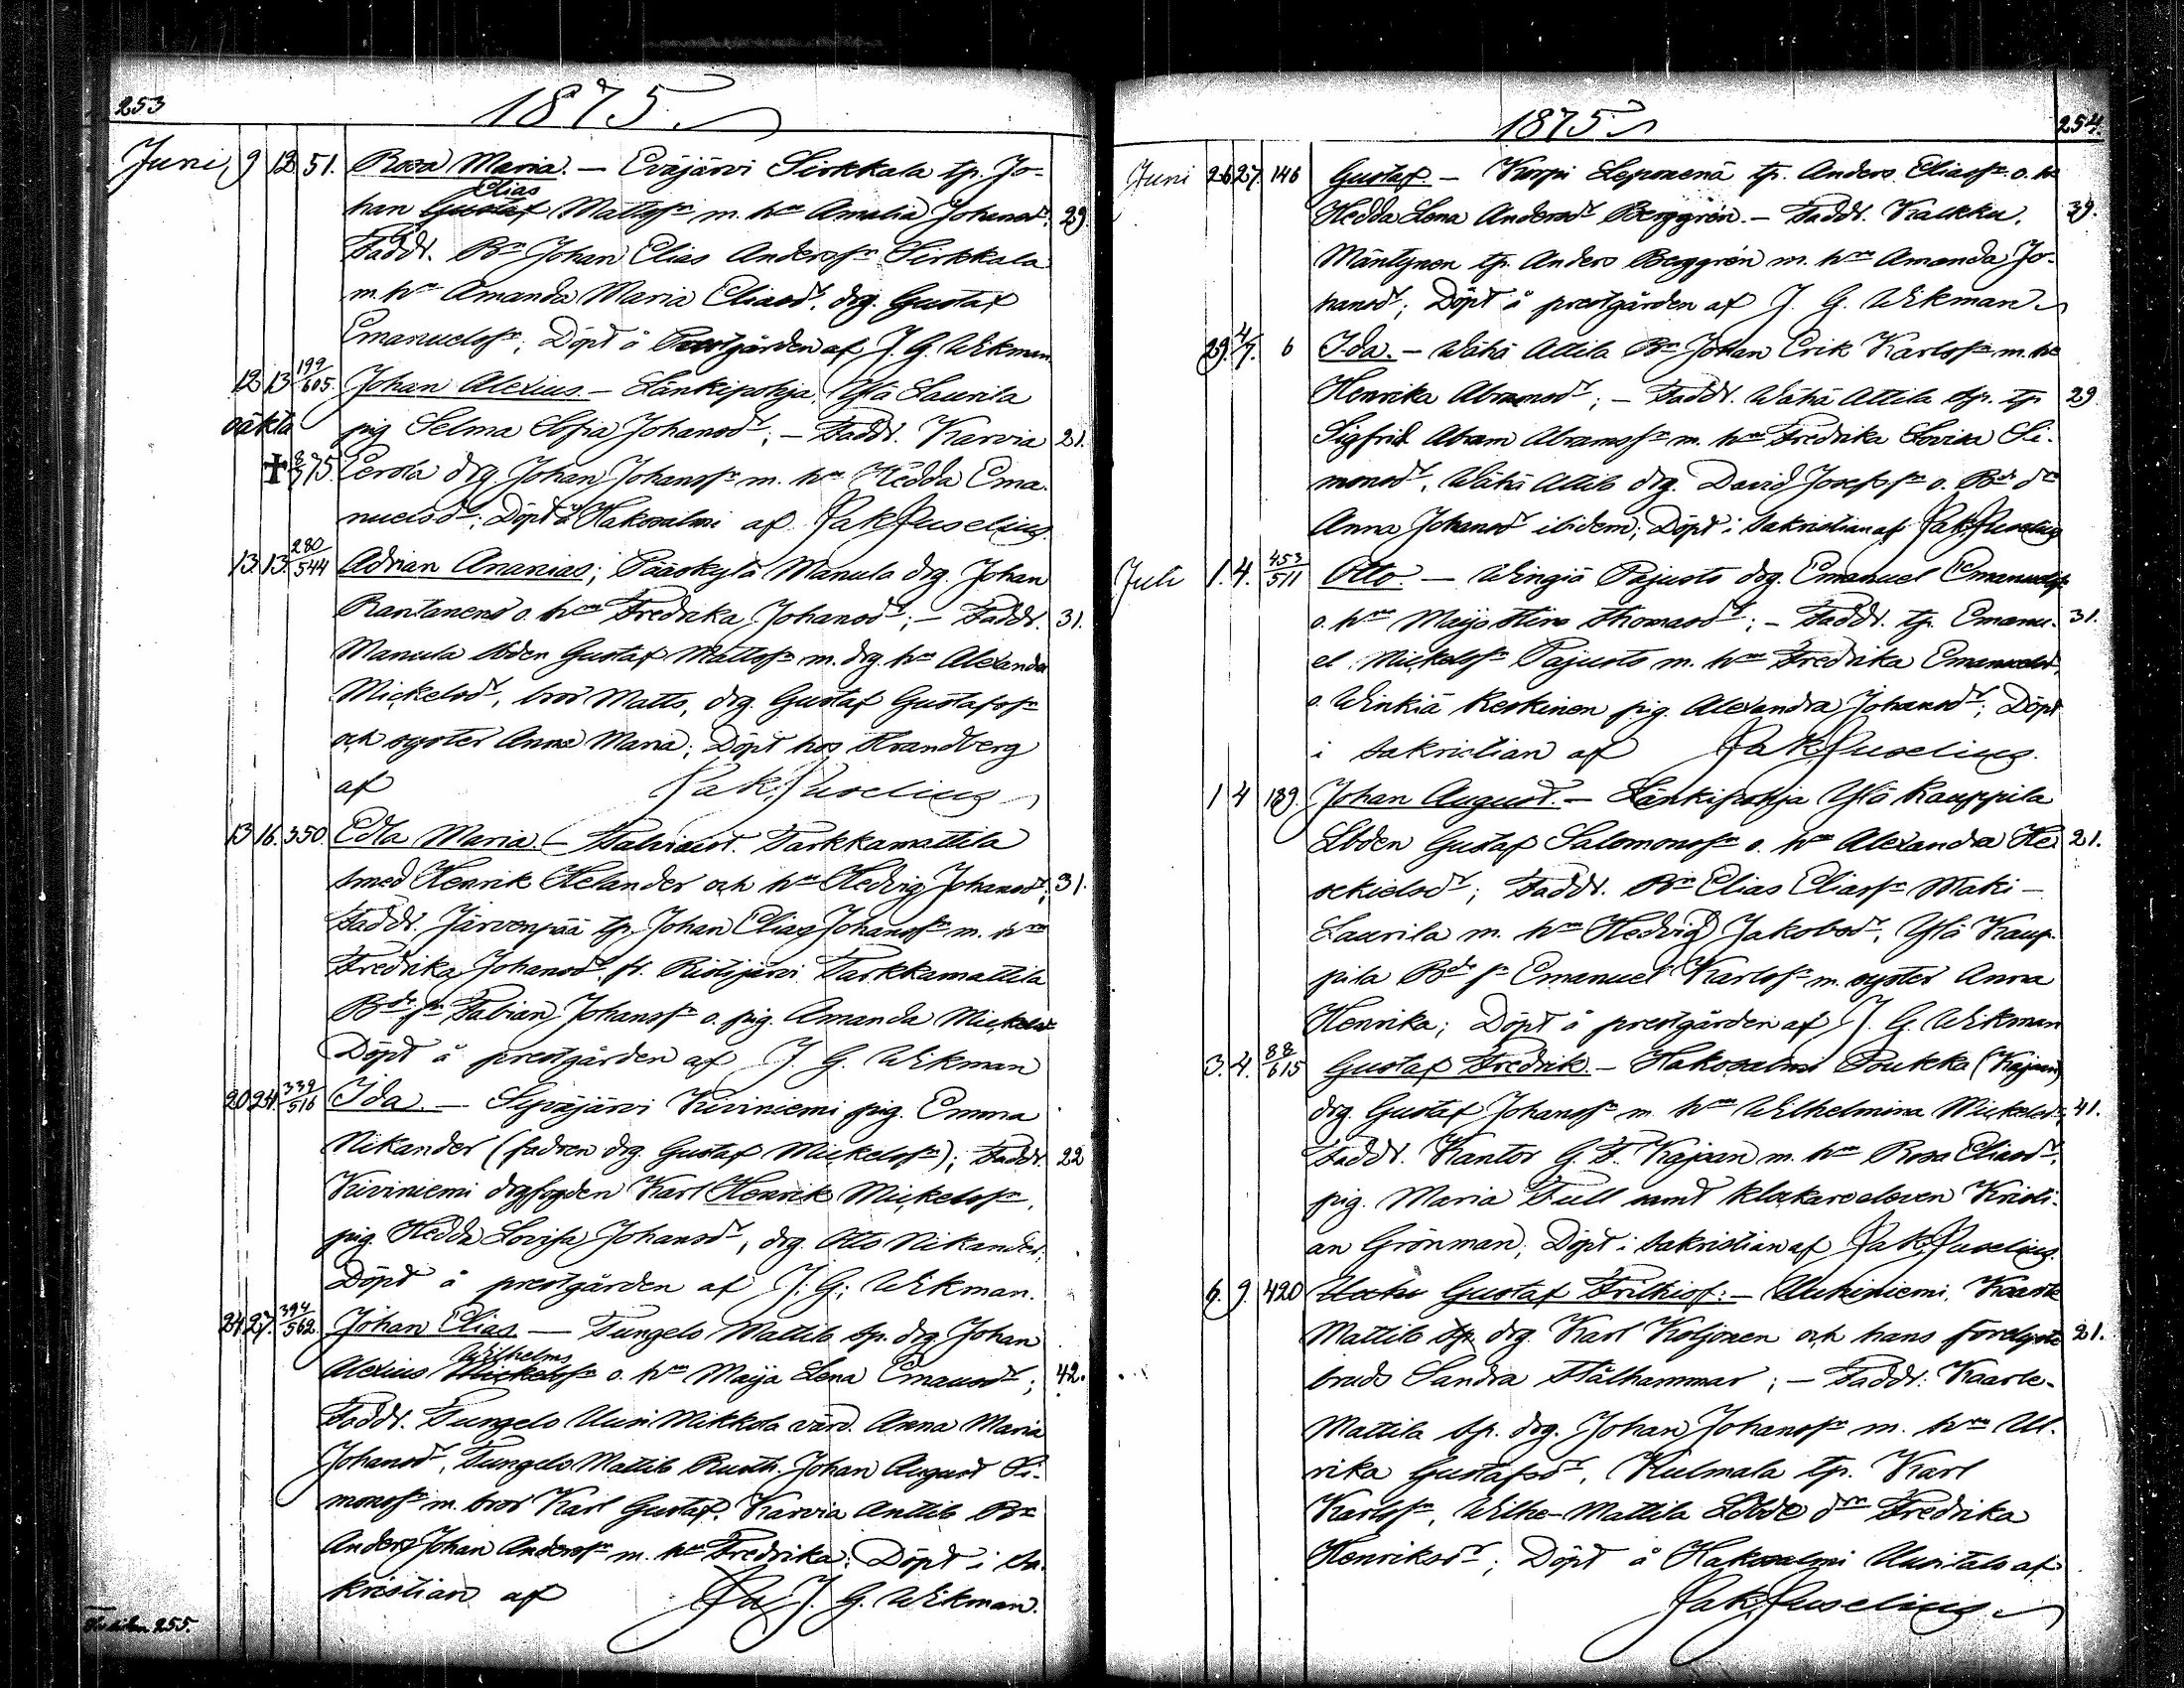 253
1875.
Juni 9 12 51. Rosa Maria. — Eväjärvi Sirkkala tp. Jo-
Elias
han Gustaf Mattsſn m. hu Amalia Johansdr. 29.
Faddr. Bn Johan Elias Andersſn Sirkkala
m. hu Amanda Maria Eliasdr. drg. Gustaf
Emanuelsſn; Döpt å Prestgården af J. G. Wikman.
12 13 199/605. Johan Alexius. — Länkipohja, Ylä Laurila
oäkta pig Selma Sofia Johansdr; — Faddr. Karvia 21.
✝ 8/7 75. Eerola drg. Johan Johansſn m. hu Hedda Ema-
nuelsdr; Döpt å Hakosalmi af Jak. Juselius.
13. 13. 280/544 Adrian Ananias; Pääskylä Manula drg. Johan
Rantanens o. hu Fredrika Johansdr; — Faddr. 31.
Manula lboden Gustaf Mattsſn m. drg. hu Alexandra
Mickelsdr, bror Matts, drg. Gustaf Gustafsſn
och syster Anna Maria; Döpt hos Strandberg
af Jak. Juselius
13 16. 350. Edla Maria. — Talviaist. Tarkkamattila
smed Henrik Helander och hu Hedvig Johansdr; 31.
Faddr. Järvenpää tp. Johan Elias Johansſn m. hu
Fredrika Johansdr. fr. Ristijärvi Tarkkamattila
Bde ſn Fabian Johansſn o. pig. Amanda Mickelsdr
Döpt å prestgården af J. G. Wikman
20 24. 339/516 Ida. — Sypäjärvi Kiviniemi pig. Emma
Nikander (fadren drg. Gustaf Mickelsſn); Faddr. 22
Kiviniemi drgfogden Karl Henrik Mickelsſn,
pig. Hedda Lovisa Johansdr, drg. Otto Nikander;
Döpt å prestgården af J. G. Wikman.
24. 27. 394/562. Johan Elias. — Tungelo Mattila sp. drg. Johan
Wilhelms
Alexius Mickelsſn o. hu Maija Lena Emansdr; 42.
Faddr. Tungelo Uusi Mikkola värd. Anna Maria
Johansdr, Tungelo Mattila Rusth. Johan August Si-
monsſn m. bror Karl Gustaf. Karvia Anttila Bn
Anders Johan Andersſn m. hu Fredrika; Döpt i Sa-
kristian af J. G. Wikman.
255.
1875
254.
Juni 26 27. 146 Gustaf. — Korpi Leponenä tp. Anders Eliasſn o. hu
Hedda Lena Andersdr Berggrén. — Faddr. Kalkku, 39.
Mäntynen tp. Anders Berggrén m. hu Amanda Jo-
hansdr; Döpt å prestgården af J. G. Wikman
29. 4/7. 6 Ida. — Wähä Attila Bn Johan Erik Karlsſn m. hu
Henrika Abramsdr; — Faddr. Wähä Attila sp. tp. 29
Sigfrid Abram Abramsſn m. hu Fredrika Lovisa Si-
monsdr, Wähä Attila drg. David Josefsſn o. Bde dr
Anna Johansdr ibidem; Döpt i sakristian af Jak. Juselius
Juli 1. 4. 453/511 Otto. — Wingiä Pajusto drg. Emanuel Emanuelsſn
o. hu Maija Stina Thomasdr; — Faddr. tp. Emanu- 31.
el Mickelsſn Pajusto m. hu Fredrika Emanuelsdr
o. Winkiä Keskinen pig. Alexandra Johansdr; Döpt
i sakristian af Jak. Juselius.
1 4 189. Johan August. — Länkipohja Ylä Kauppila
Lboden Gustaf Salomonsſn o. hu Alexandra He- 21.
sekielsdr; Faddr. Bn Elias Eliasſn Mäki-
Laurila m. hu Hedvig Jakobsdr, Ylä Kaup-
pila Bde ſn Emanuel Karlsſn m. syster Anna
Henrika; Döpt å prestgården af J. G. Wikman
3. 4. 88/615 Gustaf Fredrik. — Hakosalmi Poukka (Kajaan)
drg. Gustaf Johansſn m. hu Wilhelmina Mickelsdr; 41.
Faddr. Kantor G. F. Kajaan m. hu Rosa Eliasdr,
pig. Maria Full samt klockareeleven Kristi-
an Grönman; Döpt i sakristian af Jak. Juselius.
6. 9. 420 Gustaf Frithiof: — Uskiniemi, Kaarle
Mattila sp. drg. Karl Koljonen och hans förelyste 21.
bruds Sandra Stålhammar; — Faddr: Kaarle-
Mattila sp. drg. Johan Johansſn m. hu Ul-
rika Gustafsdr, Kulmala tp. Karl
Karlsſn, Wilhe-Mattila Lbde dr Fredrika
Henriksdr; Döpt å Hakosalmi Uusitalo af
Jak. Juselius